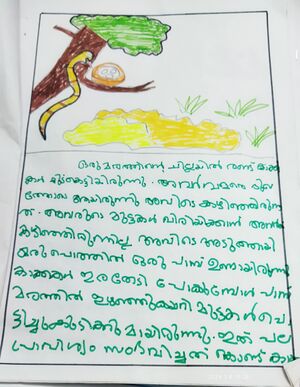 ഒരു മരത്തിന്റെ ചില്ലയിൽ രണ്ട് കാക്ക
കൾ കൂടുകെട്ടിയിരുന്നു. അവർ വളരെ
ആയിരുന്നു അവിടെ കഴിഞ്ഞിരുന്ന
ത്. അവരുടെ മുട്ടകൾ വിരിയിക്കാൻ അവർക്ക്
കഴിഞ്ഞിരുന്നില്ല അവിടെ അടുത്തായി
ഒരു പൊത്തിൽ ഒരു പാമ്പ് ഉണ്ടായിരുന്നു
കാക്കകൾ ഇരതേടി പോകുമ്പോൾ പാമ്പ്
മരത്തിൽ ഇഴഞ്ഞുകയറി മുട്ടകൾ പൊ
ട്ടിച്ചുകുടിക്കുമായിരുന്നു. ഇത് പല
പ്രാവിശ്യം സംഭവിച്ചത് കൊണ്ട് കാ